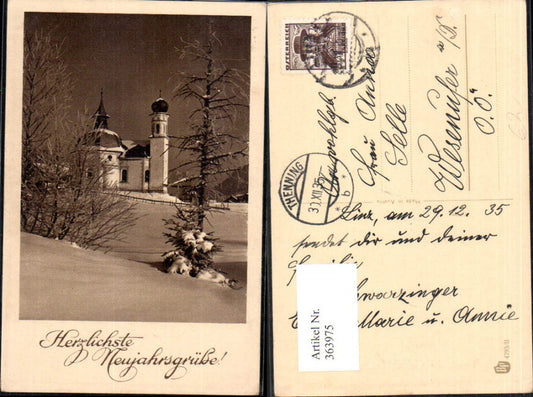 Herzlichste
Neujahrsgrüße!
ÖSTERREICH
Frau Anna
Selle
Wesenufer a/D.
O.Ö.
THENNING
30.XII.35
* b *
Made in Austria
Linz, am 29.12.35
sendet dir und deiner
Schwarzinger
Marie u. Annie
Artikel Nr.
363975